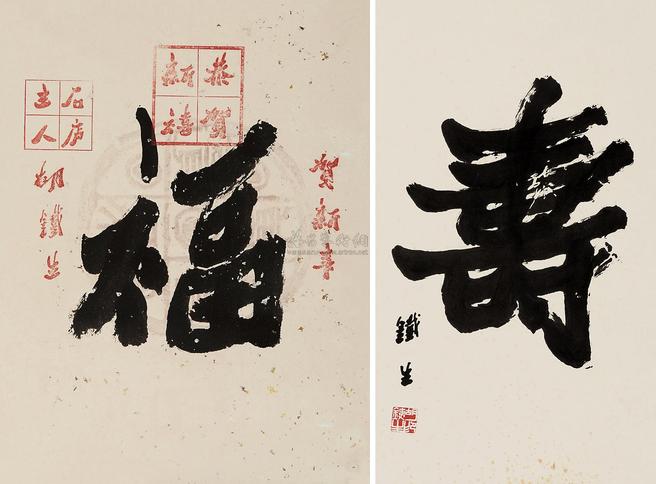 賀新年
恭賀
新禧
福
石庐
主人
胡鐵生
壽
鐵生